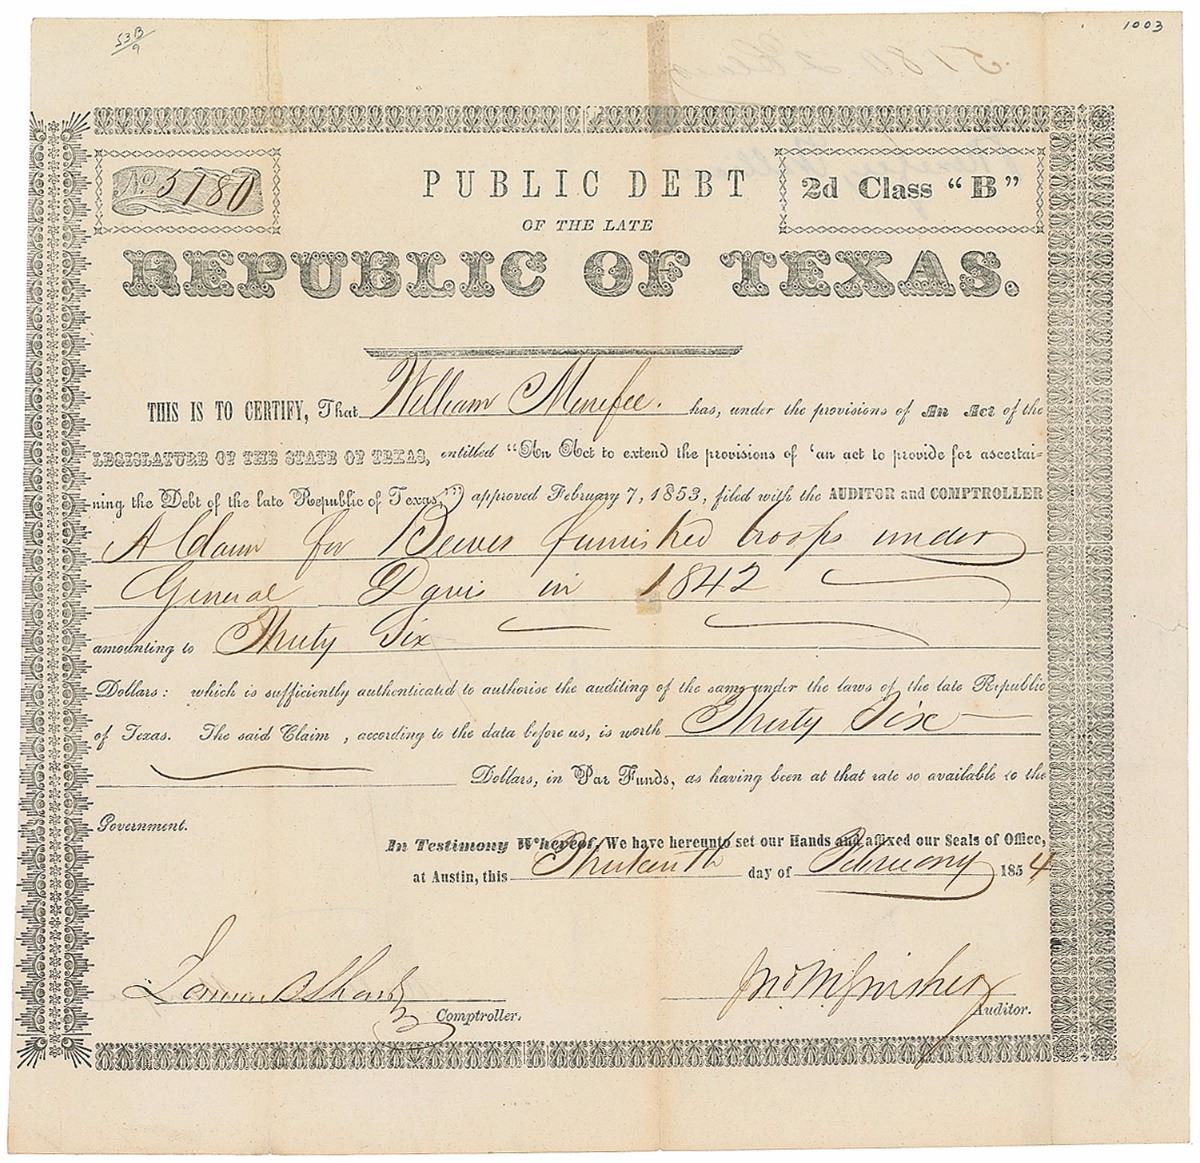 53B/9
1003
No 5180
PUBLIC DEBT
2d Class “B”
OF THE LATE
REPUBLIC OF TEXAS.
THIS IS TO CERTIFY, That William Menefee. has, under the provisions of An Act of the
LEGISLATURE OF THE STATE OF TEXAS, entitled “An Act to extend the provisions of ‘an act to provide for ascertai-
ning the Debt of the late Republic of Texas,’” approved February 7, 1853, filed with the AUDITOR and COMPTROLLER
A Claim for Beeves furnished troops under
General Davis in 1842
amounting to Thirty Six
Dollars: which is sufficiently authenticated to authorise the auditing of the same under the laws of the late Republic
of Texas. The said Claim, according to the data before us, is worth Thirty Six
Dollars, in Par Funds, as having been at that rate so available to the
Government.
In Testimony Whereof, We have hereunto set our Hands and affixed our Seals of Office,
at Austin, this Thirteenth day of February 1854
James B Shaw
Comptroller.
Jno M Swisher
Auditor.